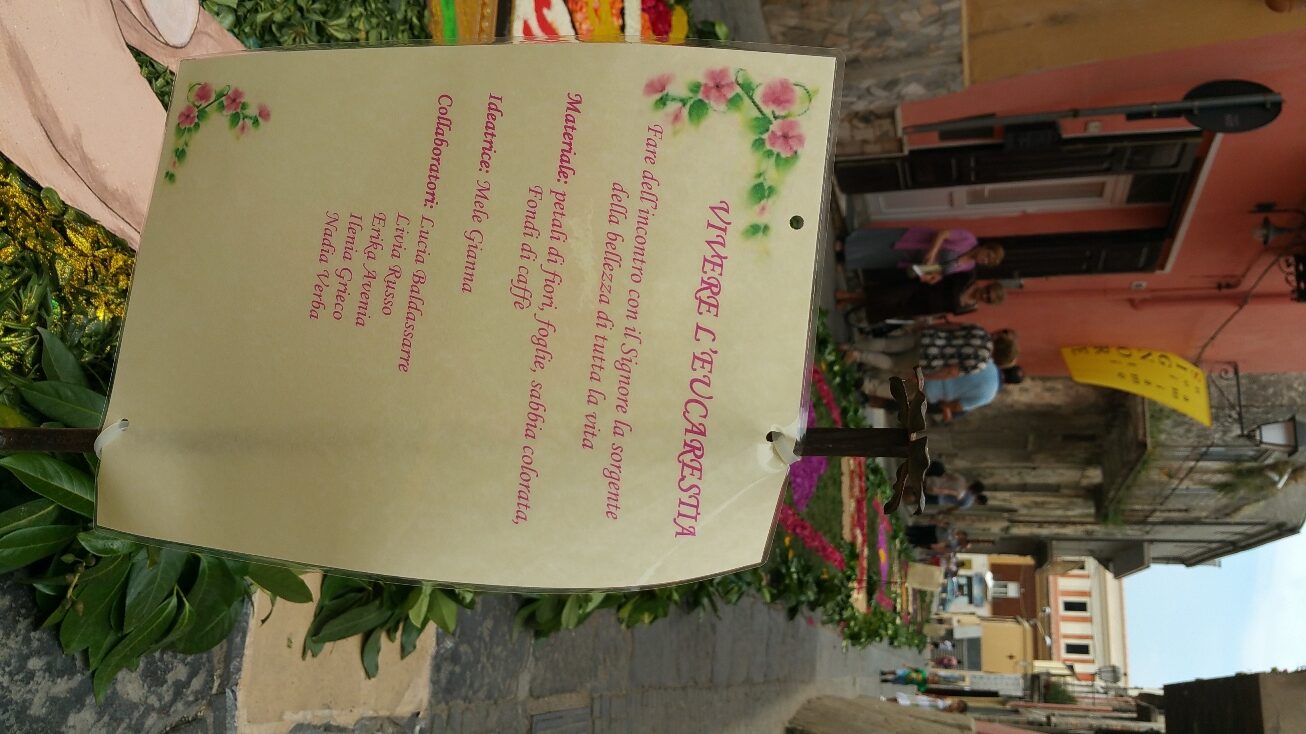 VIVERE L'EUCARESTIA
Fare dell'incontro con il Signore la sorgente
della bellezza di tutta la vita
Materiale: petali di fiori, foglie, sabbia colorata,
Fondi di caffè
Ideatrice: Mele Gianna
Collaboratori: Lucia Baldassarre
Livia Russo
Erika Avenia
Ilenia Grieco
Nadia Verba